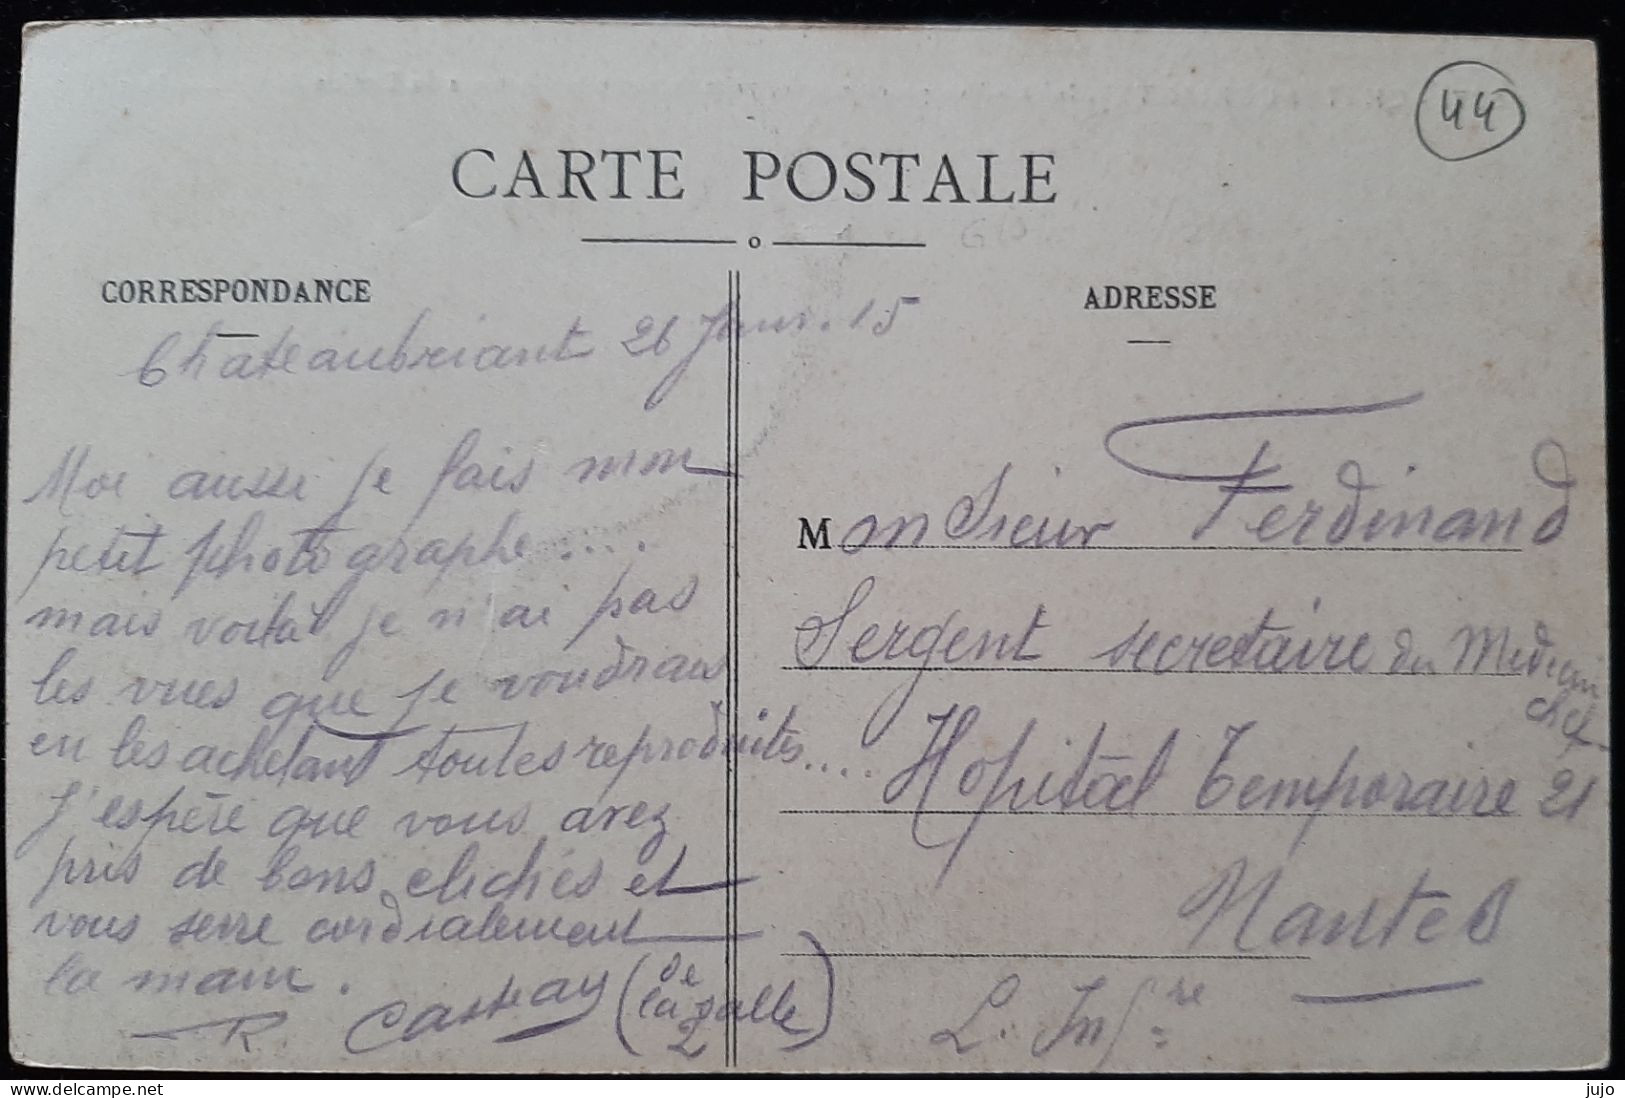 44
CARTE POSTALE
CORRESPONDANCE
Chateaubriant 26 Janv. 15
Moi aussi je fais mon
petit photographe....
mais voilà je n'ai pas
les vues que je voudrais
en les achetant toutes reproduites....
J'espère que vous avez
pris de bons clichés et
vous serre cordialement
la main.
R Castray (de
la salle)
ADRESSE
Monsieur Ferdinand
Sergent secretaire du Medecin
chef
Hopital Temporaire 21
Nantes
L. Infre
Delcampe.net
jujo